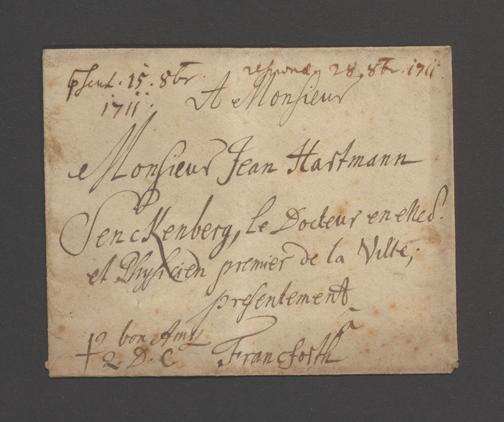 pSent. 15. 8br. 1711. respond. 28. 8br. 1711
A Monsieur
Monsieur Jean Hartmann
Senckenberg, le Docteur en Med.
et Physicien premier de la Ville,
presentement
bon Amy
2 D. C Francforth